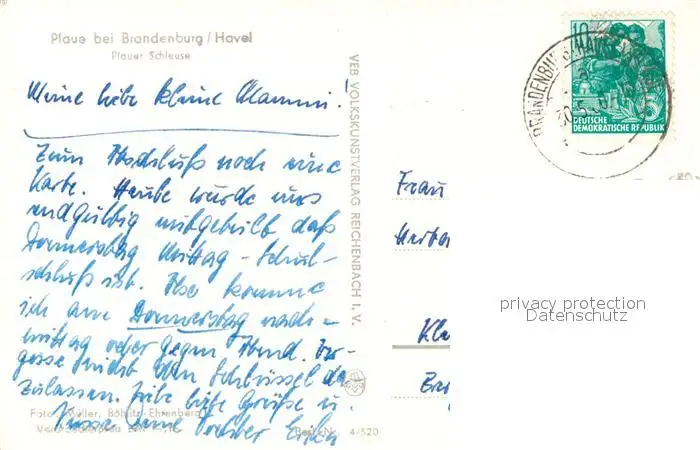 Plaue bei Brandenburg / Havel
Plauer Schleuse
Meine liebe kleine Mammi!
Zum Abschluß noch eine
Karte. Heute wurde uns
endgültig mitgeteilt daß
Donnerstag Mittag - Schul-
schluß ist. Also komme
ich am Donnerstag nach-
mittag oder gegen Abend. Ver-
gesse nicht den Schlüssel da
zulassen. Viele liebe Grüße u.
Küsse Deine Tochter
Foto: Müller, Böhlitz-Ehrenberg
Best.-Nr. 4/520
VEB VOLKSKUNSTVERLAG REICHENBACH I. V.
BRANDENBURG
10
5
DEUTSCHE
DEMOKRATISCHE REPUBLIK
Frau
privacy protection
Datenschutz